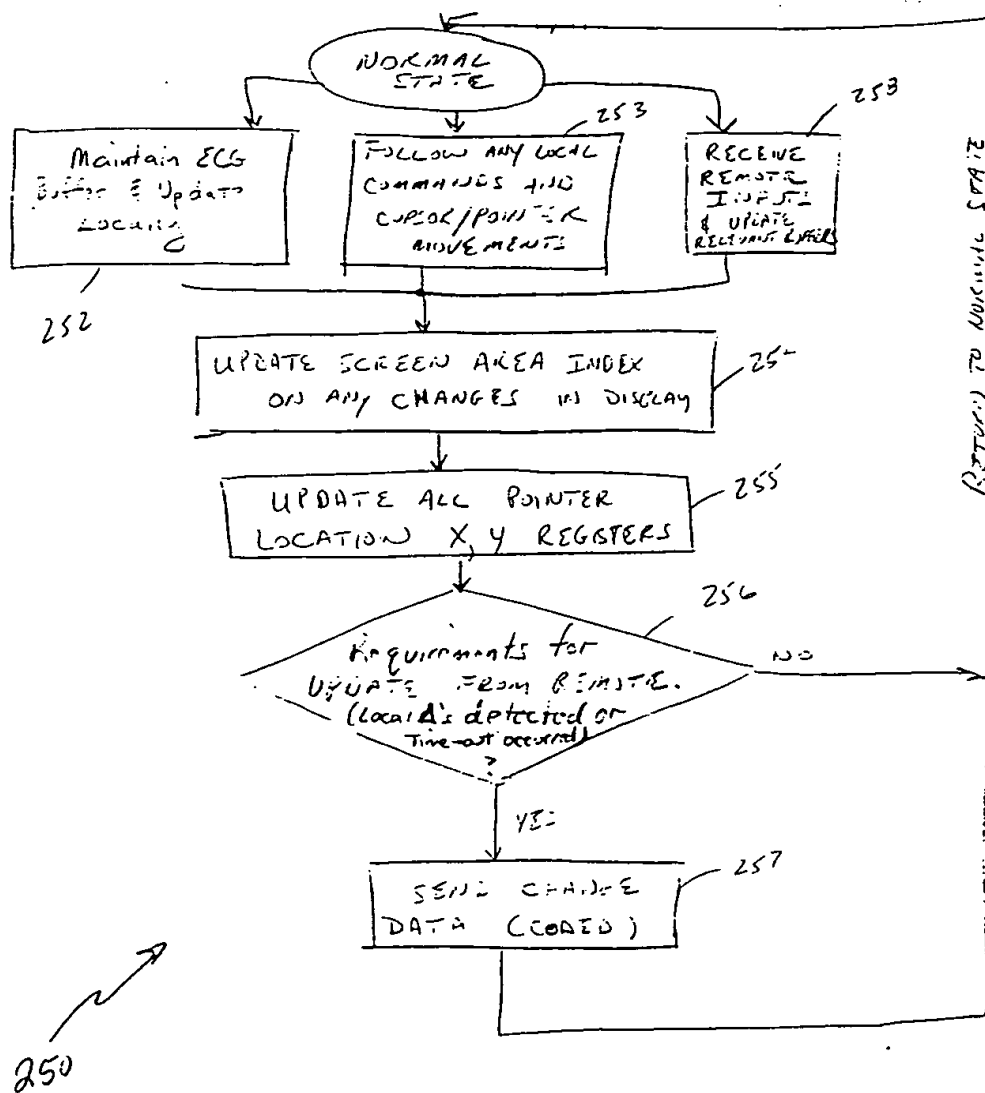 NORMAL
STATE
253
253
Maintain ECG
Buffer & Update
Locally
FOLLOW ANY LOCAL
COMMANDS AND
CURSOR/POINTER
MOVEMENTS
RECEIVE
REMOTE
INPUTS
& UPDATE
RELEVANT BUFFERS
252
RETURN TO NORMAL STATE
UPDATE SCREEN AREA INDEX
ON ANY CHANGES IN DISPLAY
25
UPDATE ALL POINTER
LOCATION X, Y REGISTERS
255
256
Requirements for
UPDATE FROM REMOTE.
(Local Δ's detected or
Time-out occurred)
?
NO
YES
SEND CHANGE
DATA (CODED)
257
250